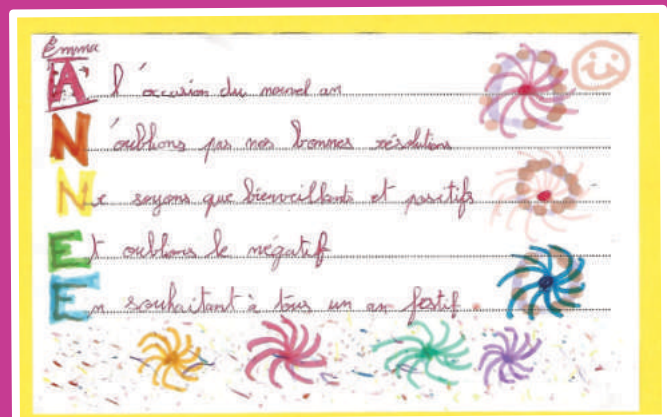 Emma
A l'occasion du nouvel an
N'oublions pas nos bonnes résolutions
Ne soyons que bienveillants et positifs
Et oublions le négatif
En souhaitant à tous un an festif.